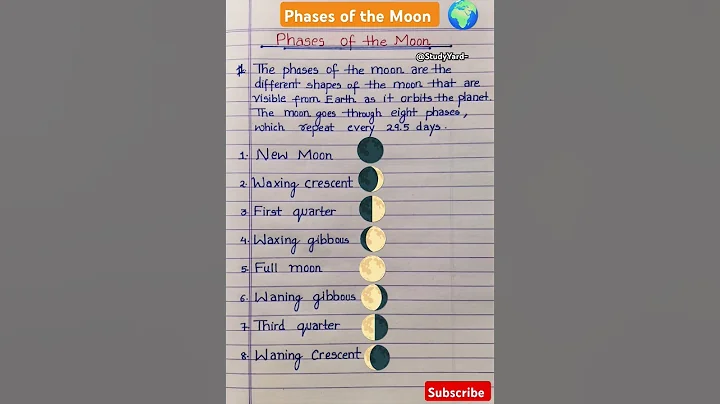 Phases of the Moon
Phases of the Moon
@StudyYard-
The phases of the moon are the
different shapes of the moon that are
visible from Earth as it orbits the planet.
The moon goes through eight phases,
which repeat every 29.5 days.
1. New Moon
2. Waxing crescent
3. First quarter
4. Waxing gibbous
5. Full moon
6. Waning gibbous
7. Third quarter
8. Waning Crescent
Subscribe